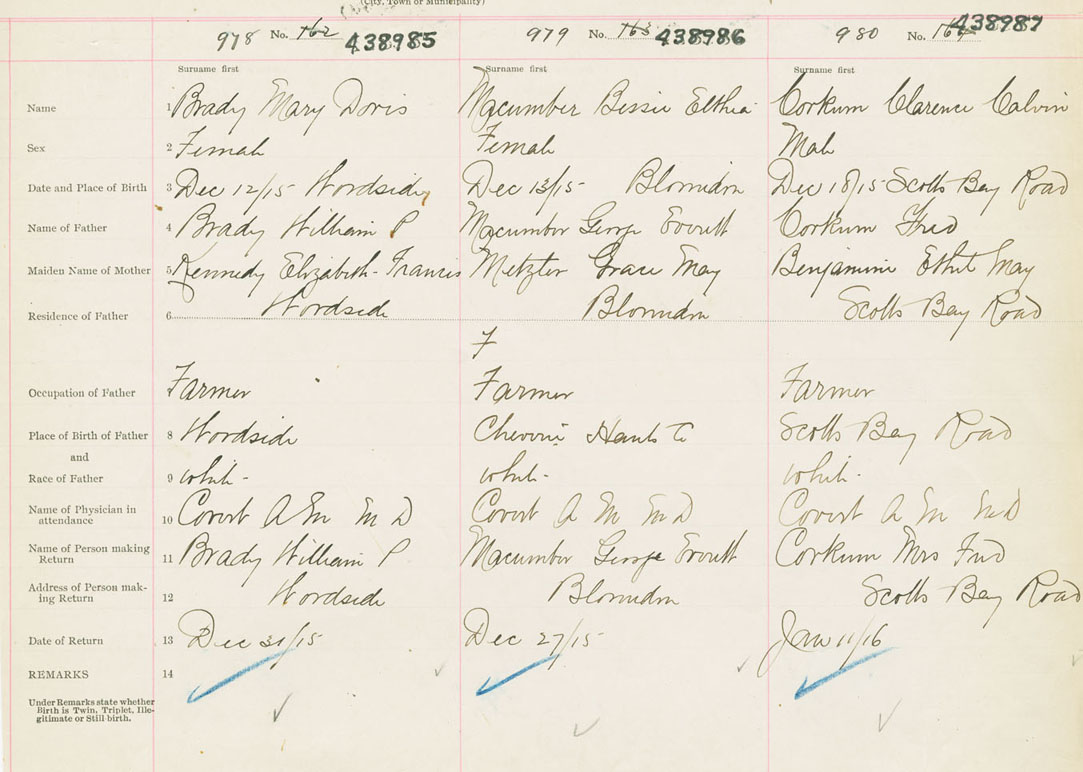 (City, Town or Municipality)
978 No. 162 438985 979 No. 163 438986 980 No. 164 438987
Surname first Surname first Surname first
Name 1 Brady Mary Doris Macumber Bessie Elthea Corkum Clarence Calvin
Sex 2 Female Female Male
Date and Place of Birth 3 Dec 12/15 Woodside Dec 13/15 Blomidon Dec 18/15 Scotts Bay Road
Name of Father 4 Brady William P Macumber George Everett Corkum Fred
Maiden Name of Mother 5 Kennedy Elizabeth Francis Metzler Grace May Benjamine Ethel May
Residence of Father 6 Woodside Blomidon Scotts Bay Road
F
Occupation of Father 7 Farmer Farmer Farmer
Place of Birth of Father 8 Woodside Cheverie Hants Co Scotts Bay Road
and
Race of Father 9 white white white
Name of Physician in
attendance 10 Covert A M M D Covert A M M D Covert A M M D
Name of Person making
Return 11 Brady William P Macumber George Everett Corkum Mrs Fred
Address of Person mak-
ing Return 12 Woodside Blomidon Scotts Bay Road
Date of Return 13 Dec 31/15 Dec 27/15 Jan 11/16
REMARKS 14
Under Remarks state whether
Birth is Twin, Triplet, Ille-
gitimate or Still-birth.